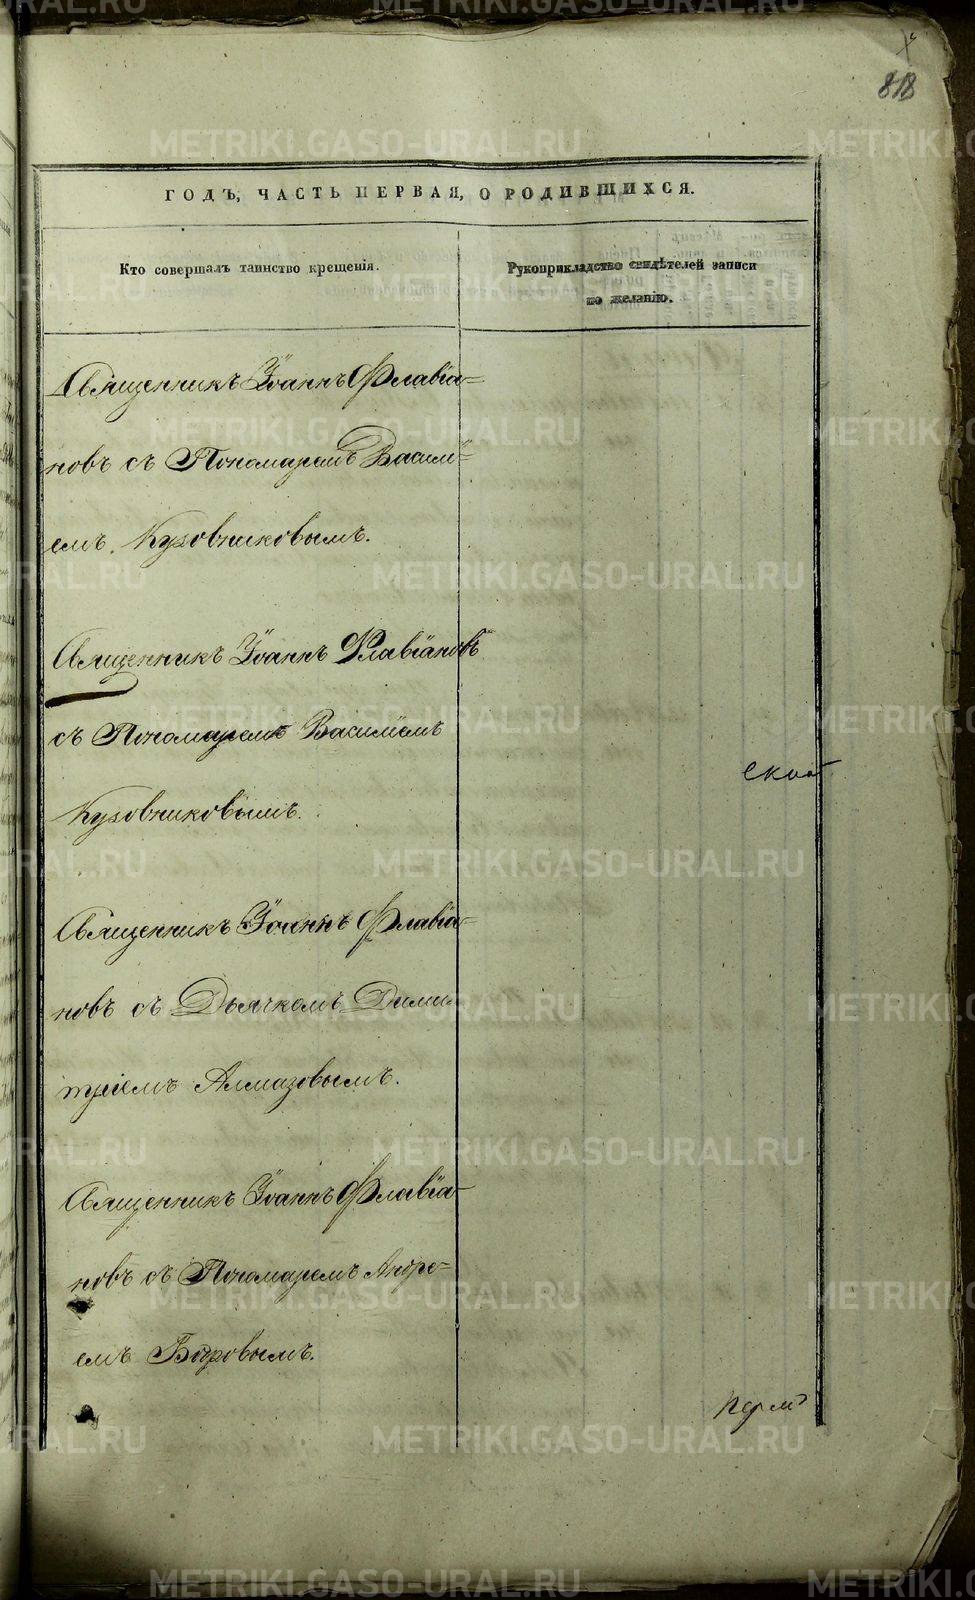 818
ГОДЪ, ЧАСТЬ ПЕРВАЯ, О РОДИВШИХСЯ.
Кто совершалъ таинство крещенія.
Рукоприкладство свидѣтелей записи
по желанію.
Священникъ Іоаннъ Флавіа=
новъ съ Пономаремъ Васили=
емъ Кузовниковымъ.
Священникъ Іоаннъ Флавіановъ
съ Пономаремъ Василіемъ
Кузовниковымъ.
Священникъ Іоаннъ Флавіа-
новъ съ Дьячкомъ Дими-
тріемъ Алмазовымъ.
Священникъ Іоаннъ Флавіа-
новъ съ Пономаремъ Андре-
емъ Боровымъ.
METRIKI.GASO-URAL.RU